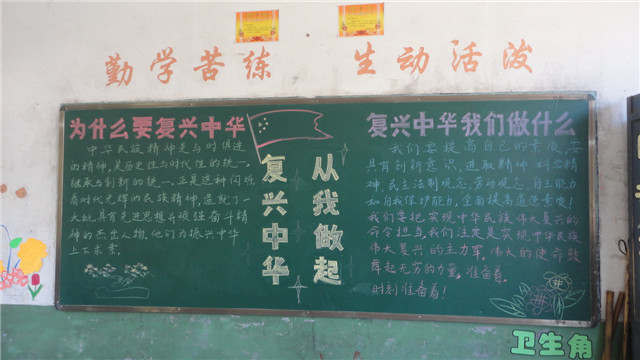 勤学苦练 生动活泼
为什么要复兴中华
中华民族精神是与时俱进
的精神,是历史性与时代性的统一,
继承与创新的统一。正是这种闪烁
着时代光辉的民族精神,造就了一
大批具有先进思想
精
神的杰出人物,他们为振兴中华
复兴中华
从我做起
复兴中华我们做什么
我们要提高自己的素质,要
具有创新意识、进取精神、科学精
神、民主法制观念、劳动观念、自主能力
和自我保护能力,全面提高道德素质!
我们要把实现中华民族伟大复兴的
使命担当,我们注定是实现中华民族
伟大复兴的主力军。伟大的使命鼓
舞起无穷的力量,准备着,
时刻准备着!
卫生角